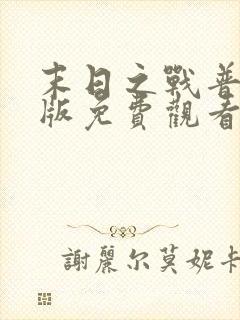 末日之戰普
版免費觀看
謝麗尔莫妮卡